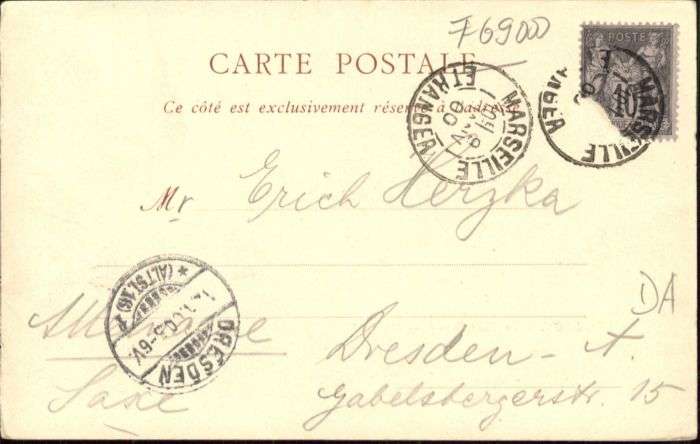 769000
POSTE
10
CARTE POSTALE
Ce côté est exclusivement réservé à l'adresse
MARSEILLE
ETRANGER
MARSEILLE
Mr Erich Herzka
DRESDEN
* (ALTST.16) *
5-6V.
DA
Allemagne
Dresden-A.
Saxe
Gabelsbergerstr. 15